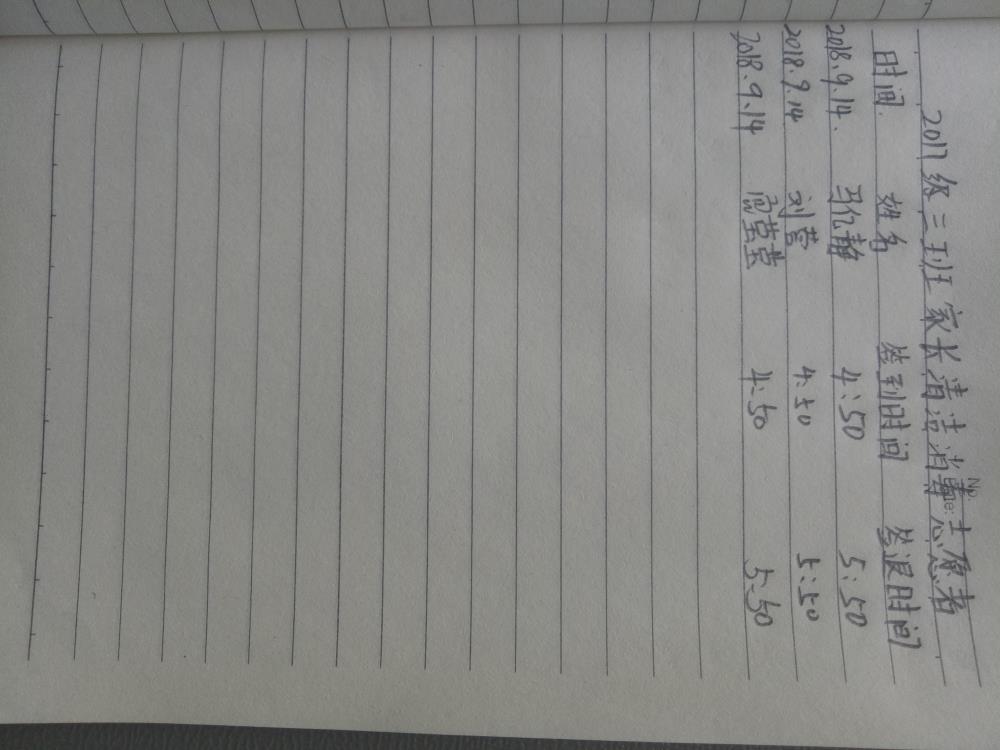 2017级三班家长清洁消毒志愿者
时间 姓名 签到时间 签退时间
2018.9.14. 马亿静 4:50 5:50
2018.9.14 刘营 4:50 5:50
2018.9.14 莹莹 4:50 5:50
No.